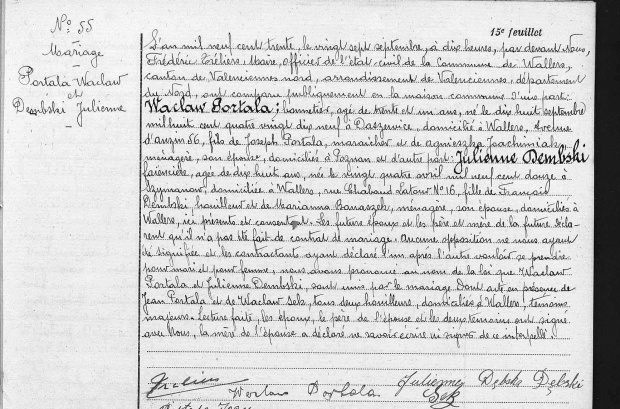 N° 55
Mariage
Portala Waclaw
et
Dembski Julienne
15e feuillet
L'an mil neuf cent trente, le vingt sept septembre, à dix heures, par devant Nous,
Frédéric Célière Maire, officier de l'état civil de la Commune de Wallers,
canton de Valenciennes nord, arrondissement de Valenciennes, département
du Nord, ont comparu publiquement en la maison commune D'une part:
Waclaw Portala; agé de trente et un ans, né le dix huit septembre
mil huit cent quatre vingt dix neuf à Daszewice, domicilié à Wallers, Avenue
d'Anzin 56, fils de Joseph Portala, maraicher et de Agnieszka Joachimiak
ménagère, son épouse, domiciliés à Poznan et d'autre part: Julienne Dembski
agée de dix huit ans, née le vingt quatre avril mil neuf cent douze à
Szymanow, domiciliée à Wallers, rue Chabaud Latour N° 16, fille de François
Dembski houilleur et de Marianna Banaszek, ménagère, son épouse, domiciliés à
Wallers, ici présents et consentant. Les futurs époux et les père et mère de la future décla-
rent qu'il n'a pas été fait de contrat de mariage. Aucune opposition ne nous ayant
été signifiée et les contractants ayant déclaré l'un après l'autre vouloir se prendre
pour mari et pour femme, nous avons prononcé au nom de la loi que Waclaw
Portala et Julienne Dembski, sont unis par le mariage. Dont acte en présence de
Jean Portala et de Waclaw Sek, tous deux houilleurs, domiciliés à Wallers, témoins
majeurs. Lecture faite, les époux, le père de l'épouse et les deux témoins ont signé
avec Nous, la mère de l'épouse a déclaré ne savoir écrire ni signer de ce interpellé.
Portala Julienne Dębska Dębski
Sek